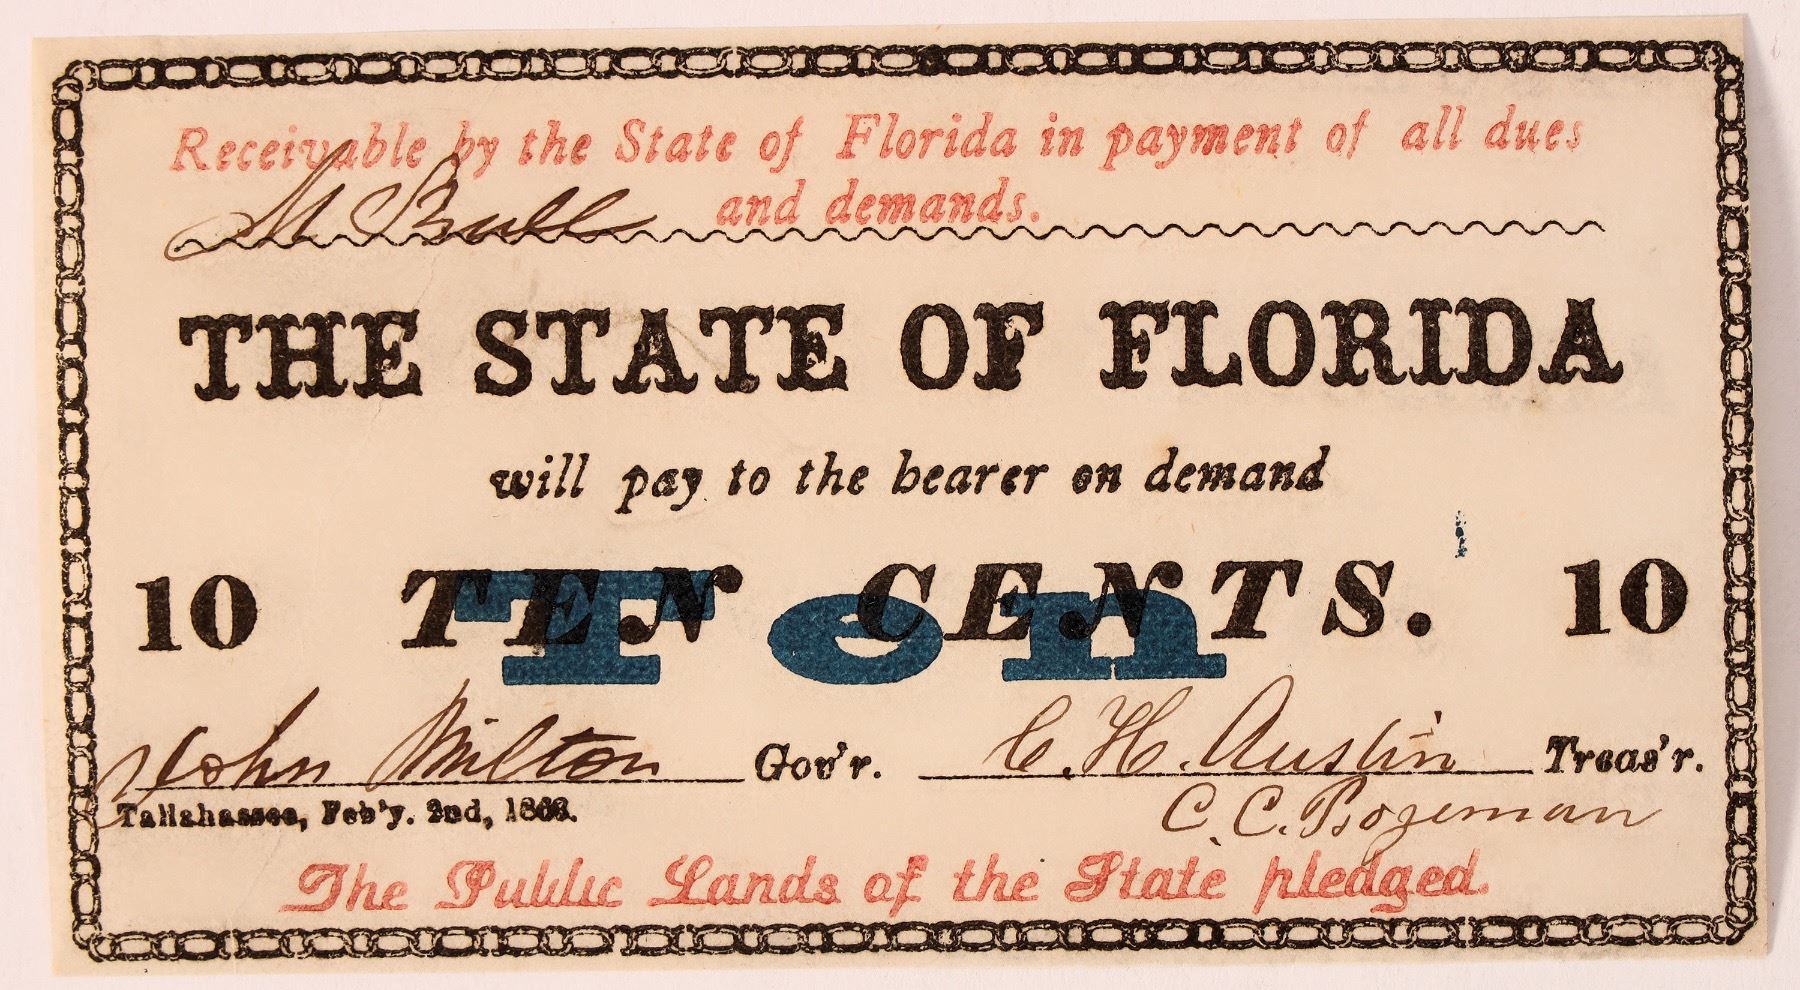 Receivable by the State of Florida in payment of all dues
and demands.
Bull
THE STATE OF FLORIDA
will pay to the bearer on demand
10 TEN CENTS. 10
Ten
John Milton Gov'r. C. H. Austin Treas'r.
Tallahassee, Feb'y. 2nd, 1863. C. C. Bozeman
The Public Lands of the State pledged.